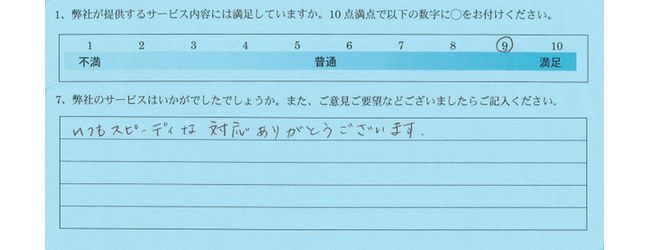 1、弊社が提供するサービス内容には満足していますか。10点満点で以下の数字に○をお付けください。
1 2 3 4 5 6 7 8 9 10
不満 普通 満足
7、弊社のサービスはいかがでしたでしょうか。また、ご意見ご要望などございましたらご記入ください。
いつもスピーディな対応ありがとうございます.